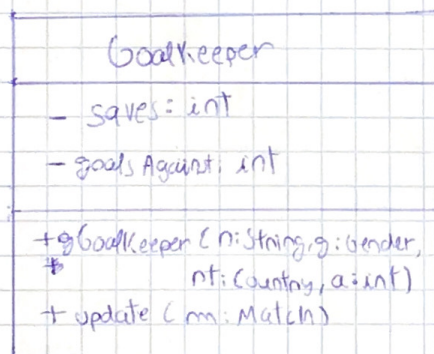 GoalKeeper
- saves: int
- goals Against: int
+ GoalKeeper (n: String, g: Gender,
nt: Country, a: int)
+ update (m: Match)